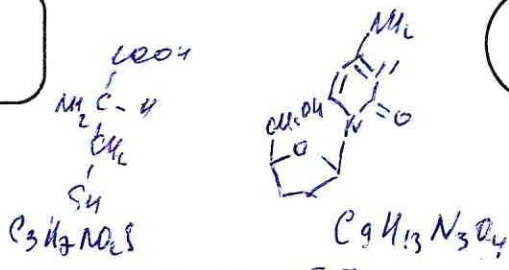 COOH
NH2 C - H
CH2
SH
C3H7NO2S
NH2
N
N
O
CH2OH
O
C9H13N3O4